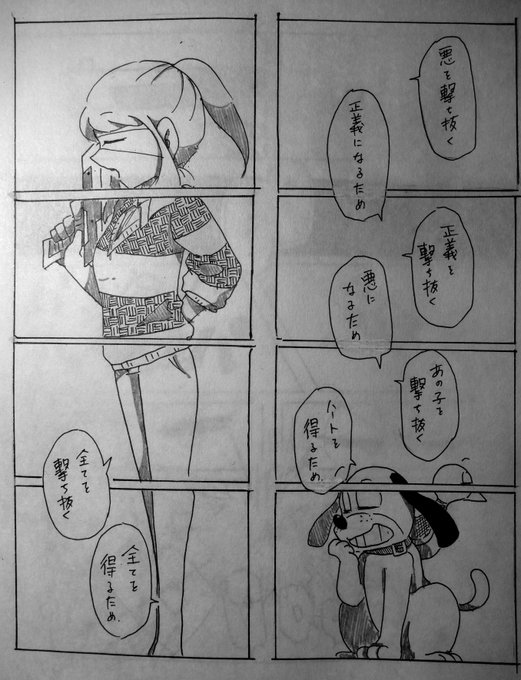 悪を撃ち抜く
正義になるため
正義を
撃ち抜く
悪に
なるため
あの子を
撃ち抜く
ハートを
得るため.
全てを
撃ち抜く
全てを
得るため.